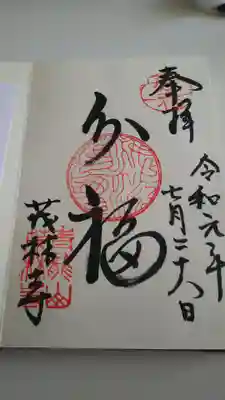 奉拝
令和元年
七月二十八日
分福
茂林寺